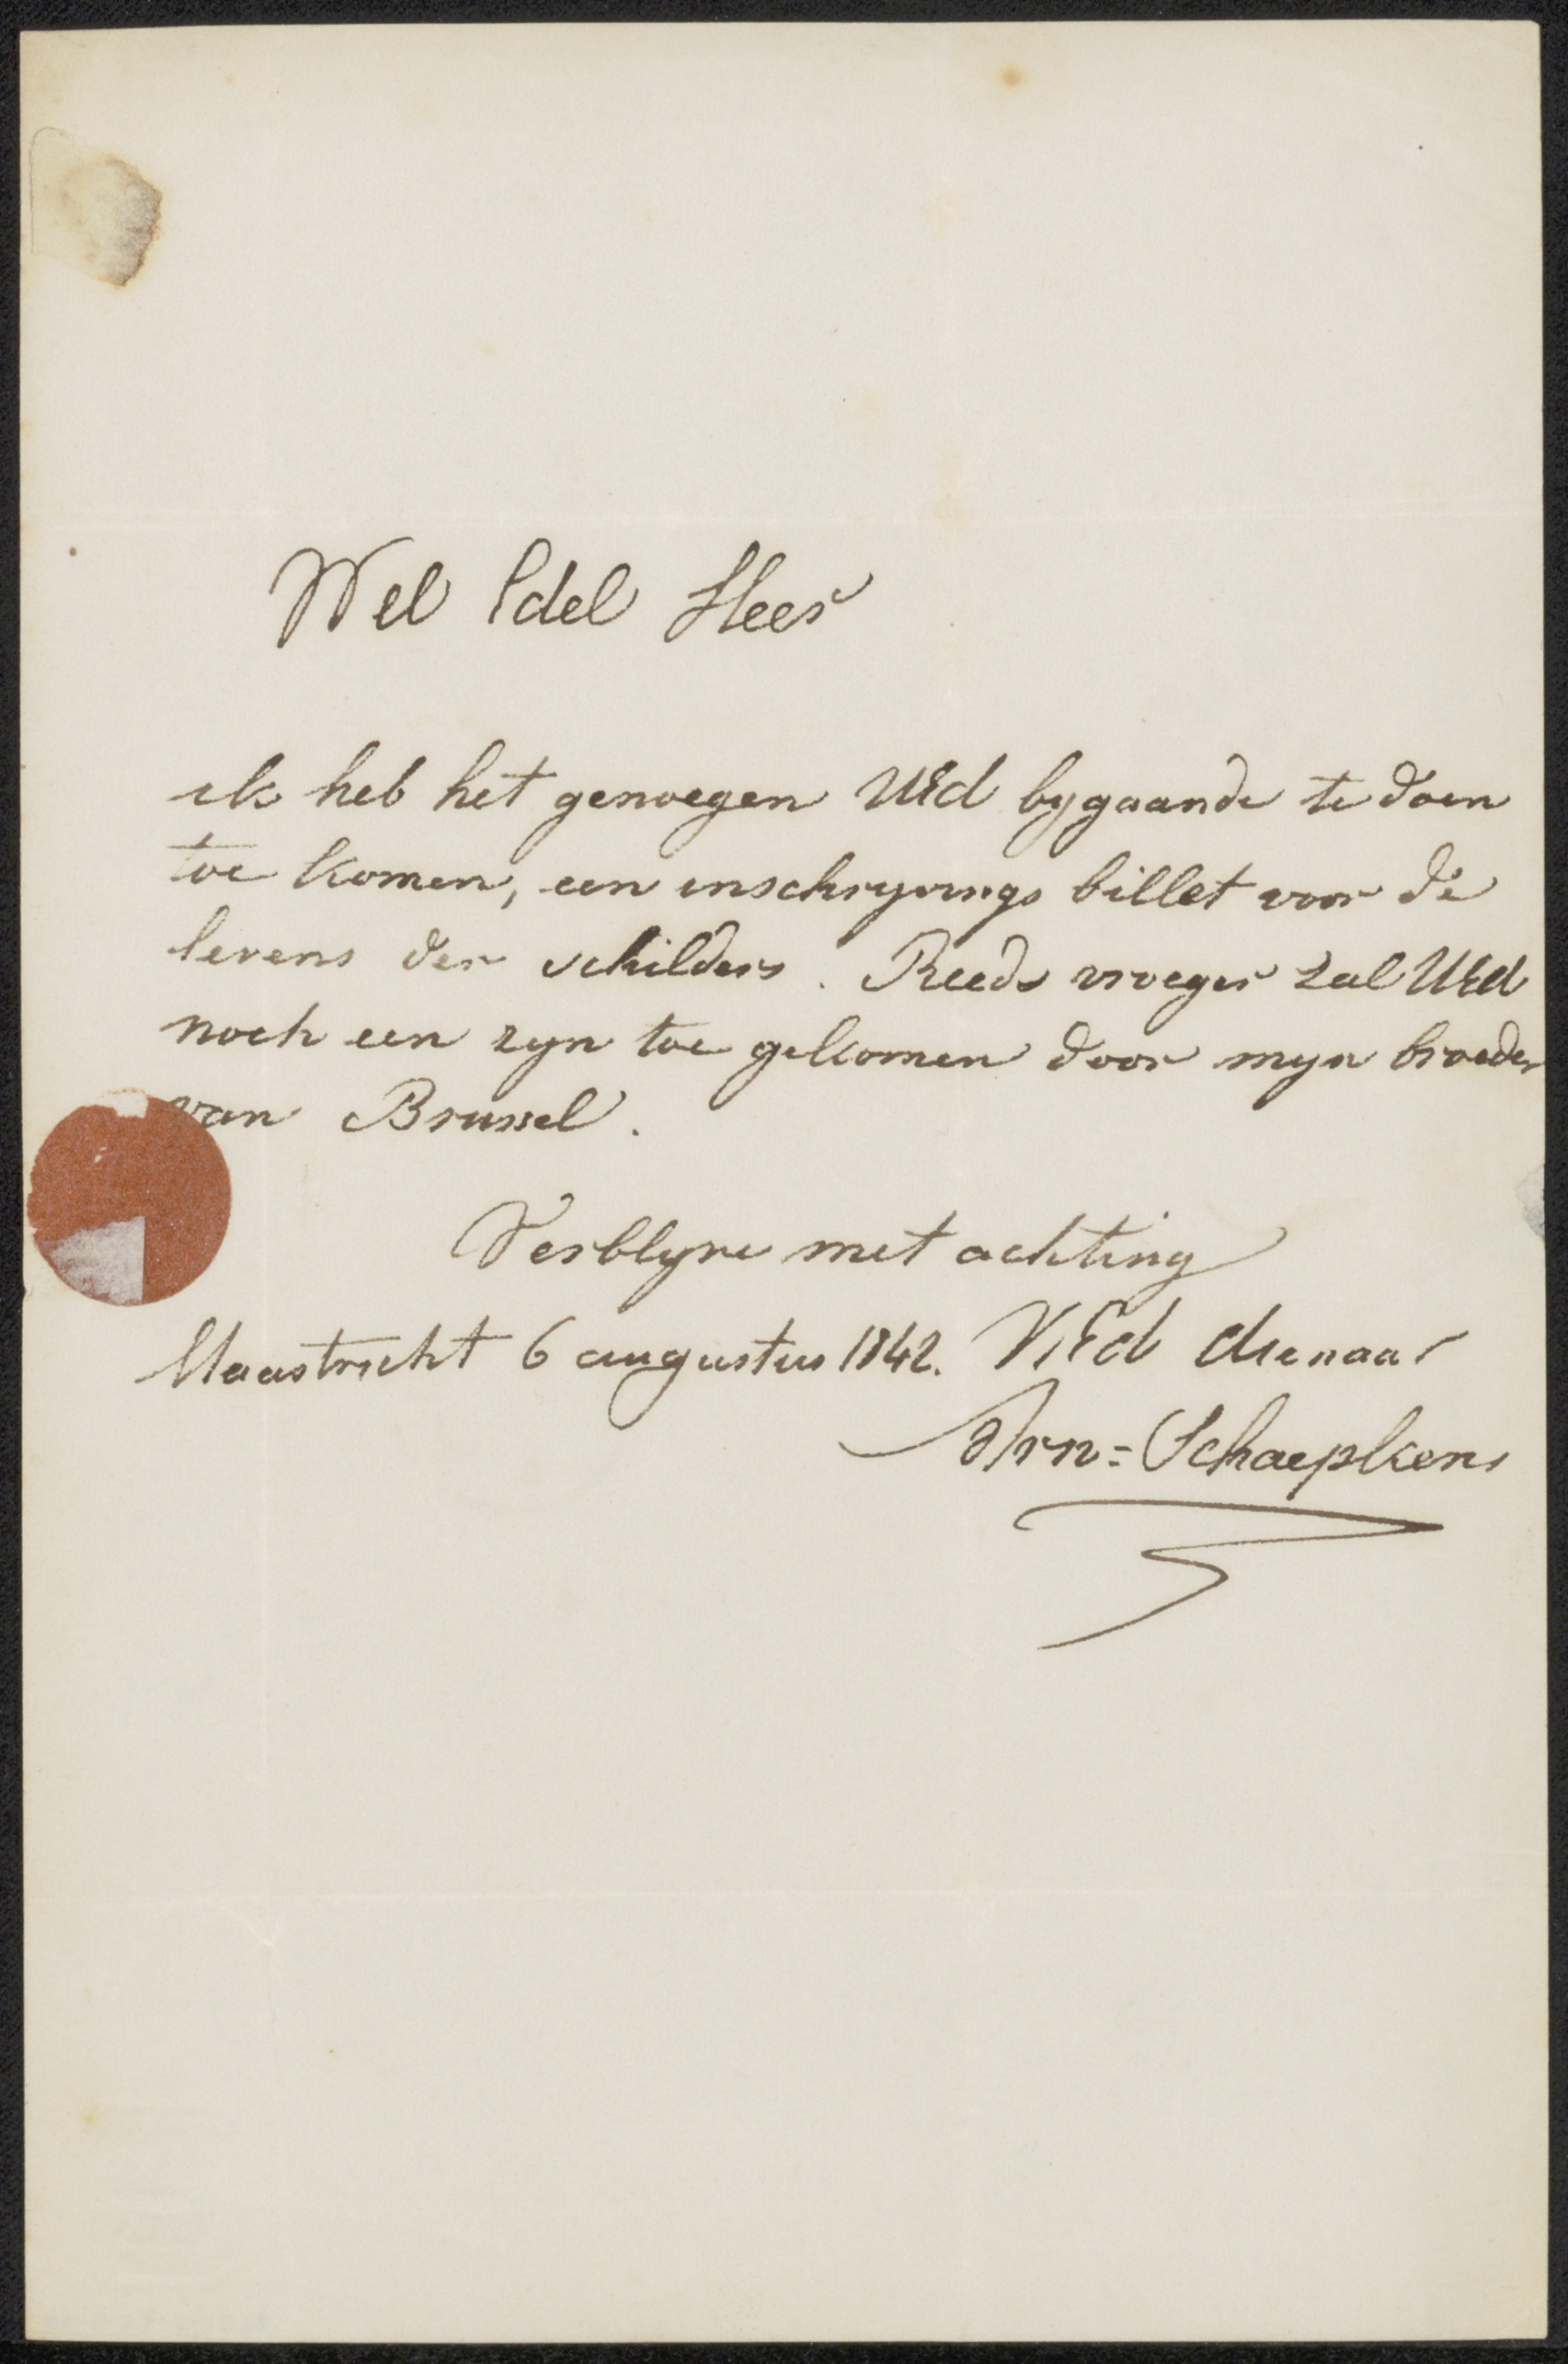 Wel Edel Heer
ik heb het genoegen UEd bygaande te doen
toe komen, een inschryvings billet voor de
levens der schilders. Reeds vroeger zal UEd
noch een zyn toe gekomen door myn broeder
van Brussel.
Verblyve met achting
Maastricht 6 augustus 1842. UEd dienaar
Arn= Schaepkens